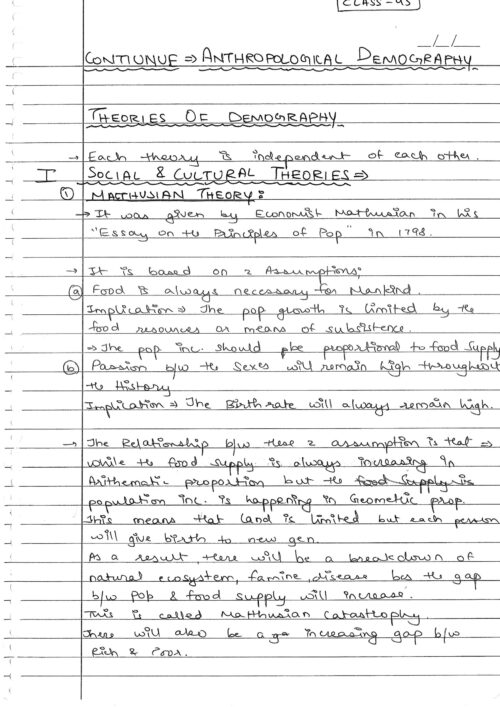 CLASS-45
__/__/__
CONTIUNUE ⇒ ANTHROPOLOGICAL DEMOGRAPHY
THEORIES OF DEMOGRAPHY
→ Each theory is independent of each other.
I SOCIAL & CULTURAL THEORIES ⇒
① MALTHUSIAN THEORY:
→ It was given by Economist Malthusian in his
"Essay on the Principles of Pop" in 1798.
→ It is based on 2 Assumptions;
ⓐ Food is always neccessary for Mankind.
Implication ⇒ The pop growth is limited by the
food resources or means of subsistence.
⇒ The pop inc. should be proportional to food supply
ⓑ Passion b/w the Sexes will remain high throughout
the History
Implication ⇒ The Birth rate will always remain high.
→ The Relationship b/w these 2 assumption is that ⇒
while the food supply is always increasing in
Arithematic proportion but the food supply is
population inc. is happening in Geometic prop.
This means that land is limited but each person
will give birth to new gen.
As a result there will be a breakdown of
natural ecosystem, famine, disease bcs the gap
b/w Pop & food supply will increase.
This is called Malthusian Catastrophy.
There will also be a increasing gap b/w
Rich & Poor.